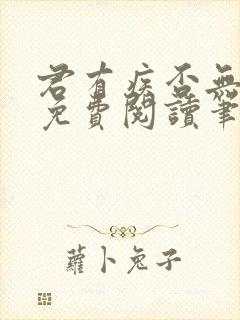 君有疾否無
免費閱讀筆
蘿卜兔子